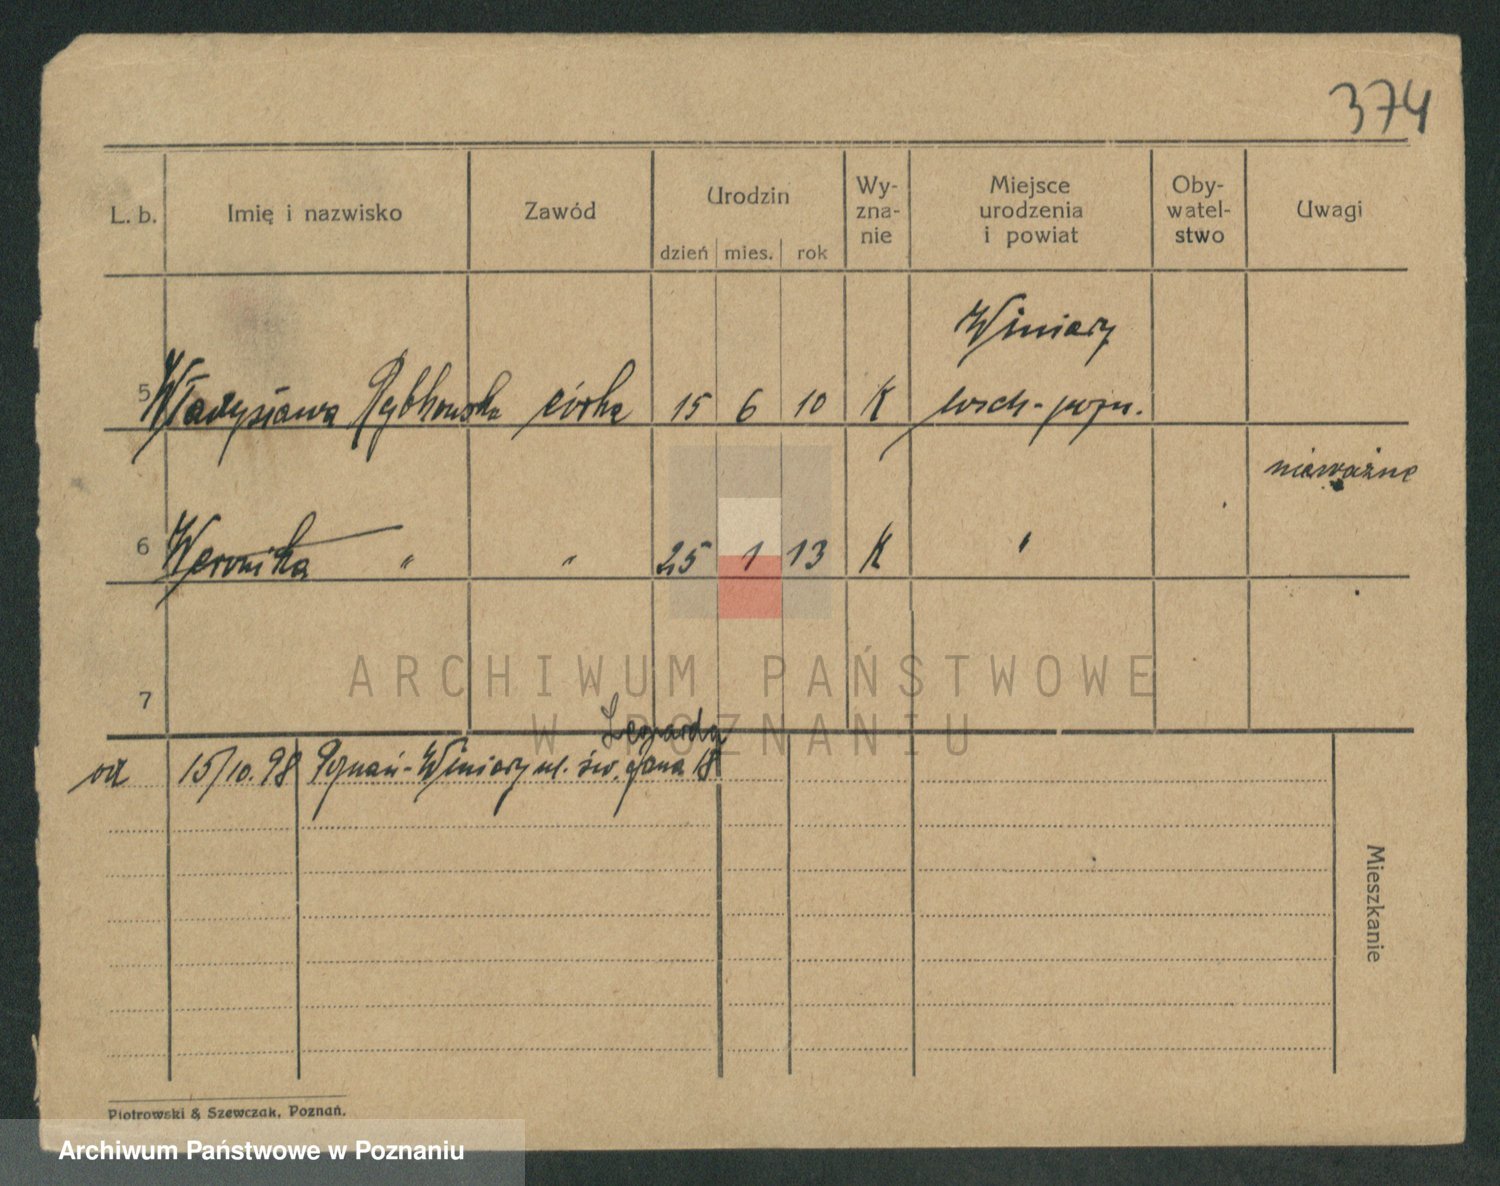 374
L. b. Imię i nazwisko Zawód Urodzin Wy- Miejsce Oby- Uwagi
zna- urodzenia watel-
nie i powiat stwo
dzień mies. rok
Winiary
5 Władysława Rybkowska córka 15 6 10 K wsch-pozn.
nieważne
6 Weronika " " 25 1 13 K "
7
ARCHIWUM PAŃSTWOWE
W POZNANIU
od 15/10.98 Poznań-Winiary ul. św. Jana 18
Mieszkanie
Piotrowski & Szewczak, Poznań.
Archiwum Państwowe w Poznaniu